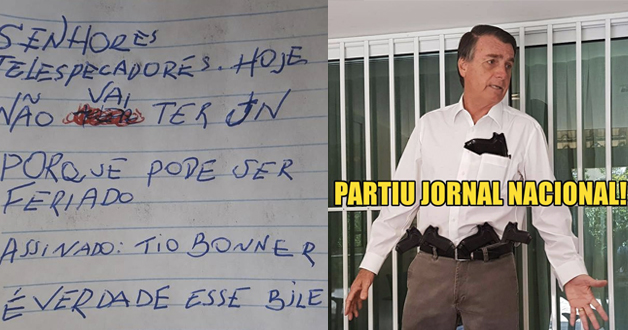 SENHORES
TELESPECADORES. HOJE
NÃO VAI TER JN
PORQUE PODE SER
FERIADO
ASSINADO: TIO BONNER
É VERDADE ESSE BILE
PARTIU JORNAL NACIONAL!